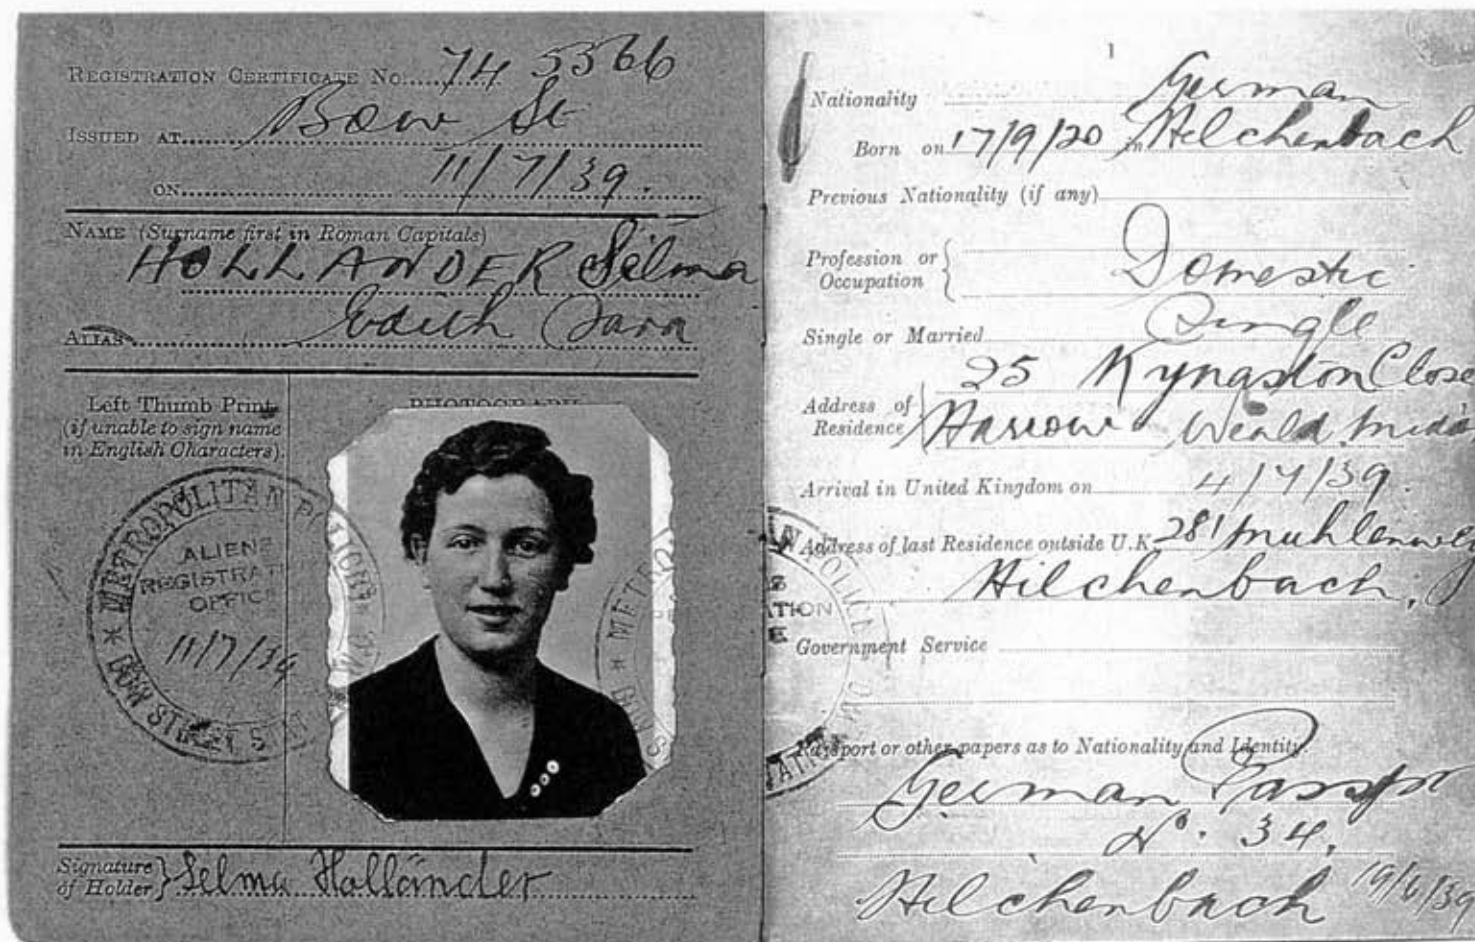 REGISTRATION CERTIFICATE No. 745566
ISSUED AT Bow St
ON 11/7/39.
NAME (Surname first in Roman Capitals)
HOLLANDER Selma
Edith Sara
ALIAS
Left Thumb Print
(if unable to sign name
in English Characters).
PHOTOGRAPH
METROPOLITAN POLICE
ALIENS
REGISTRATION
OFFICE
11/7/39
BOW STREET
Signature
of Holder} Selma Holländer
1
Nationality German
Born on 17/9/20 in Hilchenbach
Previous Nationality (if any)
Profession or
Occupation} Domestic
Single or Married Single
Address of
Residence 25 Kyngston Close
Harrow Weald Middx
Arrival in United Kingdom on 4/7/39.
Address of last Residence outside U.K. 281 Muhlenweg
Hilchenbach,
Government Service
Passport or other papers as to Nationality and Identity.
German Passpt
No. 34.
Hilchenbach 19/6/39